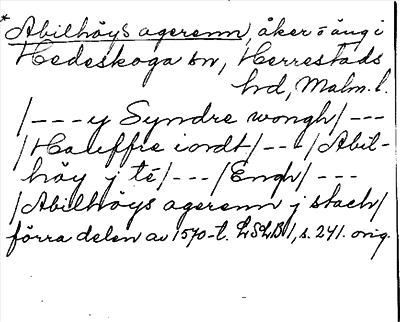 *Abilhöÿs agerenn, åker o äng i
Hedeskoga sn, Herrestads
hd, Malm. l.
/---y Syndre wongh/---
/Hauffre iordt/---/Abil-
höy j té/---/Engh/---
/Abilhöÿs agerenn j stach/
förra delen av 1570-t. LSLB 1, s. 241. orig.